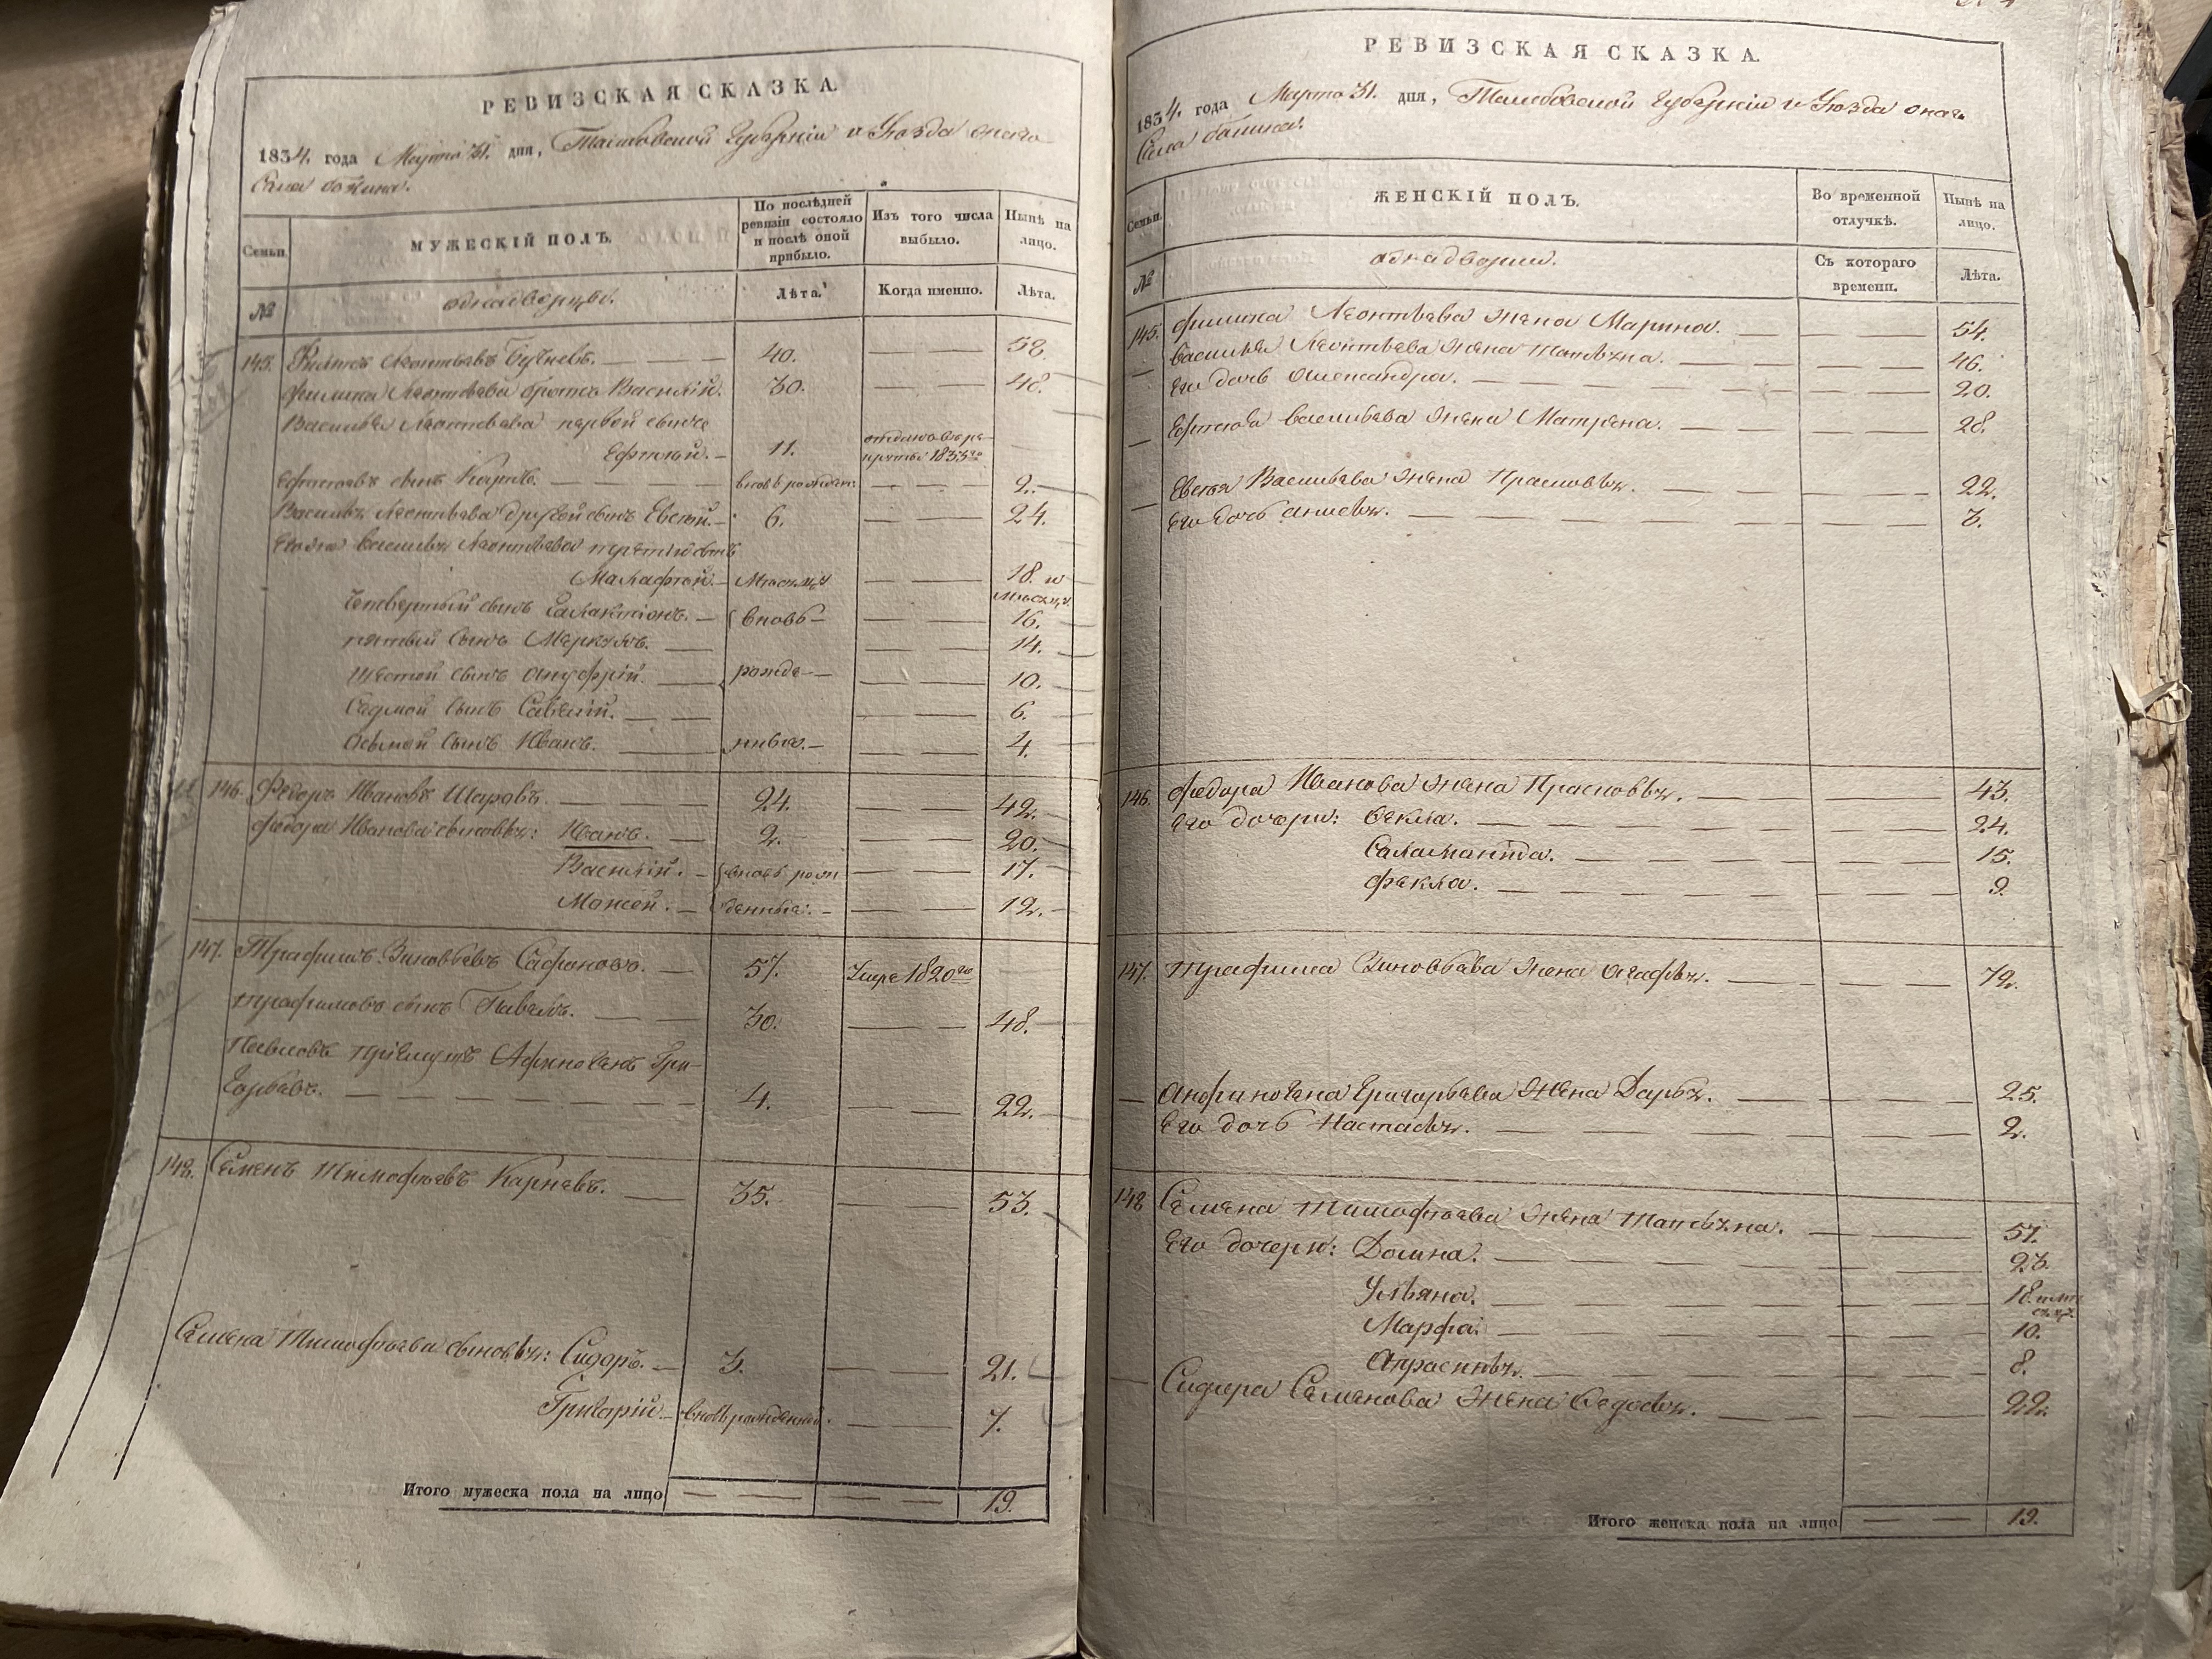 РЕВИЗСКАЯ СКАЗКА.
1834. года Марта 31. дня, Тамбовской Губернiи и Уѣзда онаго
Села
МУЖЕСКIЙ ПОЛЪ.
По послѣдней ревизiи состояло и послѣ оной прибыло.
Изъ того числа выбыло.
Нынѣ на лицо.
Семьи.
№
однадворцы.
Лѣта.
Когда именно.
Лѣта.
145. Филипъ Леонтьевъ 40. 58.
Филипа Леонтьева братъ Василiй. 30. 48.
Василья Леонтьева первой сынъ
Ефтѣй. 11. отданъ въ рекруты 1833го
Ефтѣевъ сынъ Карпъ. вновь рожден: 2.
Василья Леонтьева другой сынъ Евсѣй. 6. 24.
Василья Леонтьева третiй сынъ
Малафѣй. Мѣсяцъ 18. и мѣсяцъ.
четвертый сынъ Галактiонъ. вновь 16.
пятый сынъ Меркулъ. 14.
шестой сынъ Ануфрiй. рожде 10.
Седмой сынъ Савелiй. 6.
осьмой сынъ Иванъ. нныя. 4.
146. Федоръ Ивановъ Шаровъ. 24. 42.
Федора Иванова сыновья: Иванъ. 2. 20.
Василiй. вновь рож 17.
Мосей. денныя. 12.
147. Трафимъ Зиновьевъ Сафоновъ. 57. Умре 1820го
Трафимовъ сынъ Павелъ. 30. 48.
Павловъ прiемышъ Афиногенъ Гри-
горьевъ. 4. 22.
148. Семенъ Тимофѣевъ Карневъ. 35. 53.
Семена Тимофѣева сыновья: Сидоръ. 3. 21.
Григарiй. вновь рожденный. 7.
Итого мужеска пола на лицо 19.
РЕВИЗСКАЯ СКАЗКА.
1834. года Марта 31. дня, Тамбовской Губернiи и Уѣзда онаго
Села
Семьи.
ЖЕНСКIЙ ПОЛЪ.
Во временной отлучкѣ.
Нынѣ на лицо.
№
однадворки.
Съ котораго времени.
Лѣта.
145. Филипа Леонтьева жена Марина. 54.
Василья Леонтьева жена Татьяна. 46.
Его дочь Александра. 20.
Ефтѣя Васильева жена Матрена. 28.
Евсея Васильева жена Прасковья. 22.
Его дочь Анисья. 3.
146. Федора Иванова жена Прасковья. 43.
Его дочери: Фекла. 24.
Саламанида. 15.
Фекла. 9.
147. Трафима Зиновьева жена Агафья. 72.
Анфиногена Григорьева жена Дарья. 25.
Его дочь Настасья. 2.
148 Семена Тимофѣева жена Татьяна. 57.
Его дочери: Домна. 23.
Ульяна. 18. и мѣсяцъ.
Марфа. 10.
Апрасинья. 8.
Сидора Семенова жена Федосья. 22.
Итого женска пола на лицо 19.